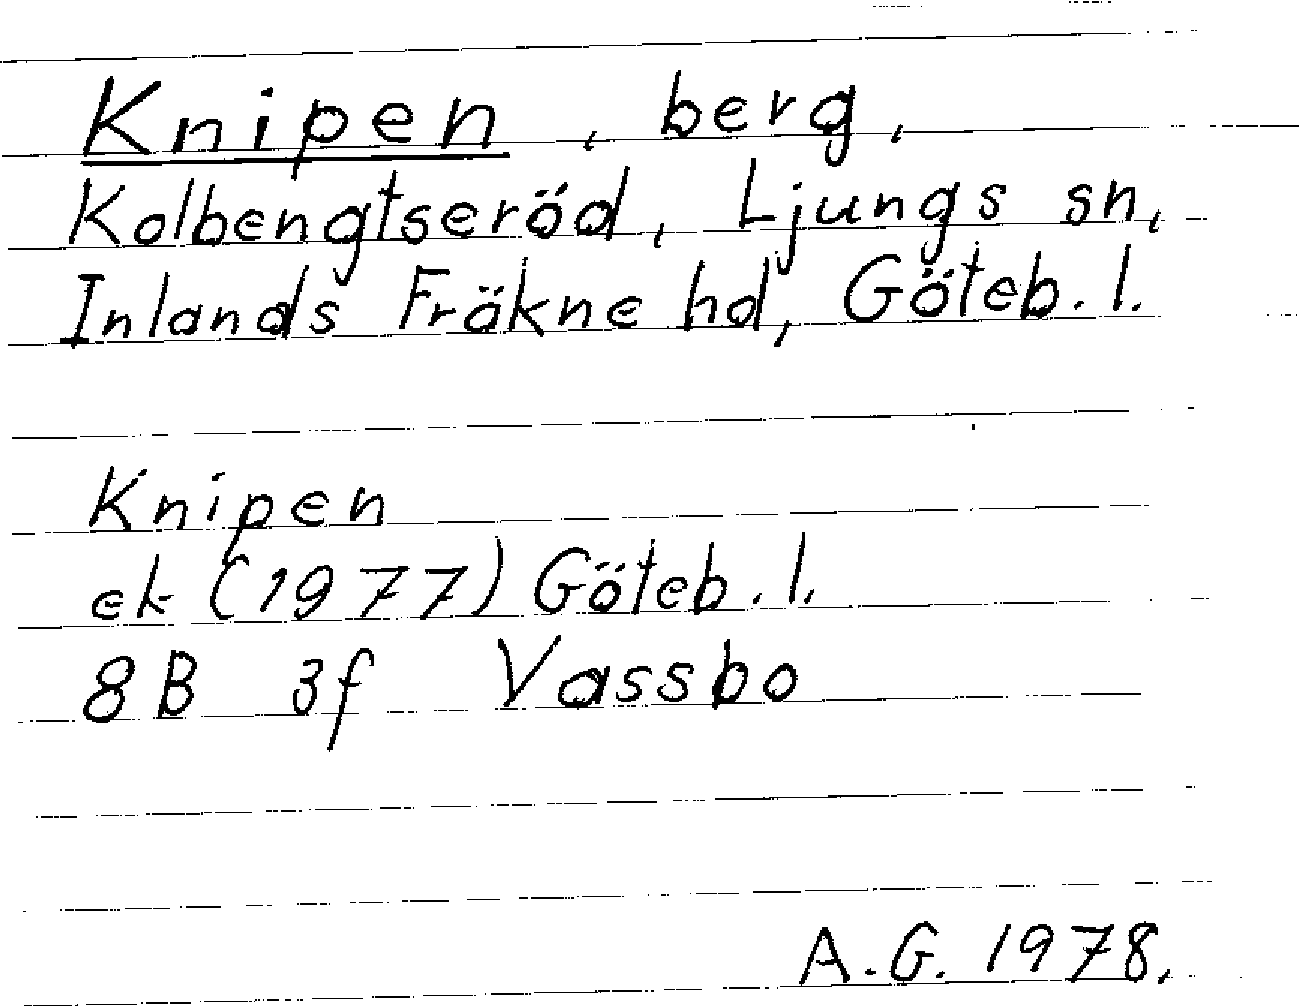 Knipen, berg,
Kolbengtseröd, Ljungs sn,
Inlands Fräkne hd, Göteb. l.
Knipen
ek (1977) Göteb. l.
8B 3f Vassbo
A.G. 1978.